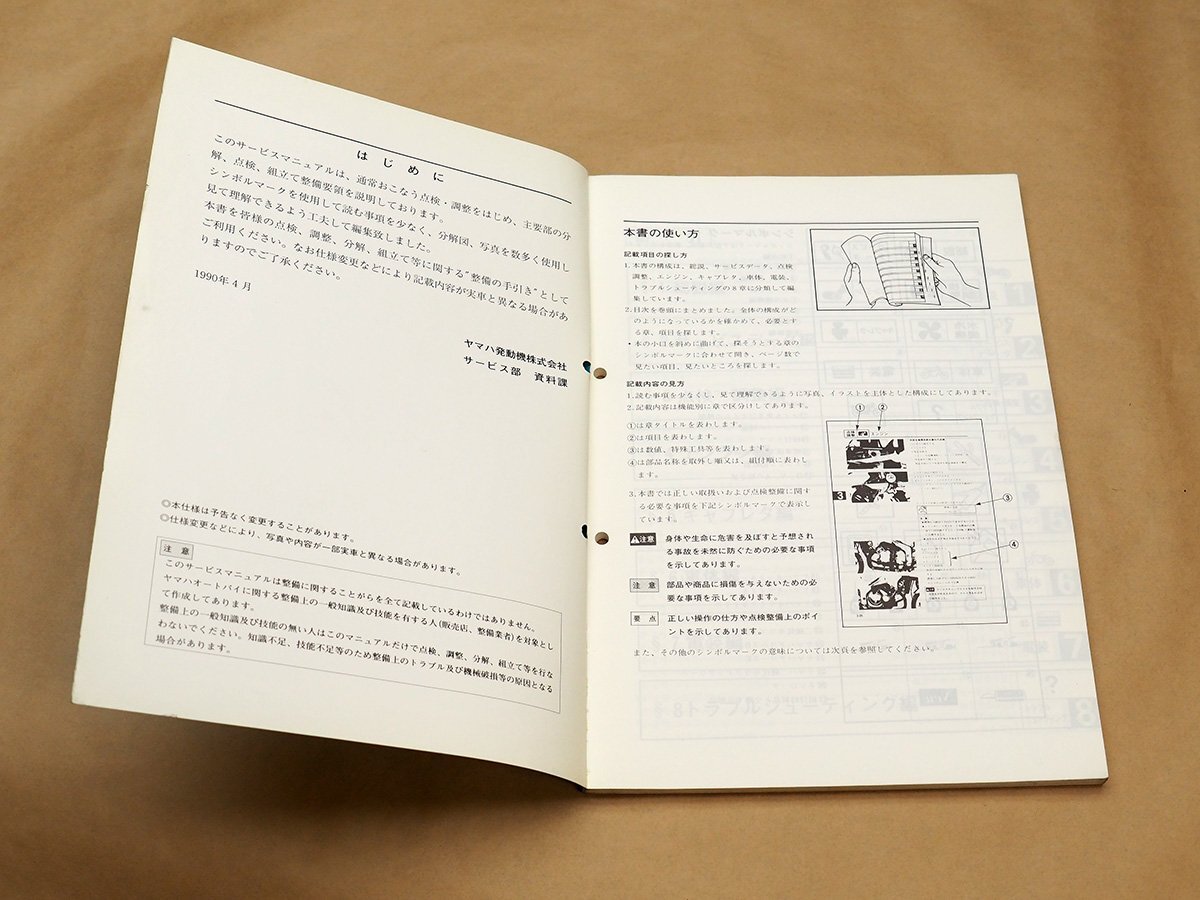 はじめに
このサービスマニュアルは、通常おこなう点検・調整をはじめ、主要部の分
解、点検、組立て整備要領を説明しております。
シンボルマークを使用して読む事項を少なく、分解図、写真を数多く使用し
見て理解できるよう工夫して編集致しました。
本書を皆様の点検、調整、分解、組立て等に関する"整備の手引き"として
ご利用ください。なお仕様変更などにより記載内容が実車と異なる場合があ
りますのでご了承ください。
1990年4月
ヤマハ発動機株式会社
サービス部 資料課
◎本仕様は予告なく変更することがあります。
◎仕様変更などにより、写真や内容が一部実車と異なる場合があります。
注 意
このサービスマニュアルは整備に関することがらを全て記載しているわけではありません。
ヤマハオートバイに関する整備上の一般知識及び技能を有する人(販売店、整備業者)を対象とし
て作成してあります。
整備上の一般知識及び技能の無い人はこのマニュアルだけで点検、調整、分解、組立て等を行な
わないでください。知識不足、技能不足等のため整備上のトラブル及び機械破損等の原因となる
場合があります。
本書の使い方
記載項目の探し方
1.本書の構成は、総説、サービスデータ、点検
調整、エンジン、キャブレタ、車体、電装、
トラブルシューティングの8章に分類して編
集しています。
2.目次を巻頭にまとめました。全体の構成がど
のようになっているかを確かめて、必要とす
る章、項目を探します。
•本の小口を斜めに曲げて、探そうとする章の
シンボルマークに合わせて開き、ページ数で
見たい項目、見たいところを探します。
記載内容の見方
1.読む事項を少なくし、見て理解できるように写真、イラストを主体とした構成にしてあります。
2.記載内容は機能別に章で区分けしてあります。
①は章タイトルを表わします。
②は項目を表わします。
③は数値、特殊工具等を表わします。
④は部品名称を取外し順又は、組付順に表わし
ます。
3.本書では正しい取扱いおよび点検整備に関す
る必要な事項を下記シンボルマークで表示し
ています。
注意 身体や生命に危害を及ぼすと予想され
る事故を未然に防ぐための必要な事項
を示してあります。
注 意 部品や商品に損傷を与えないための必
要な事項を示してあります。
要 点 正しい操作の仕方や点検整備上のポイ
ントを示してあります。
また、その他のシンボルマークの意味については次頁を参照してください。
① ②
エンジン
3
③
④